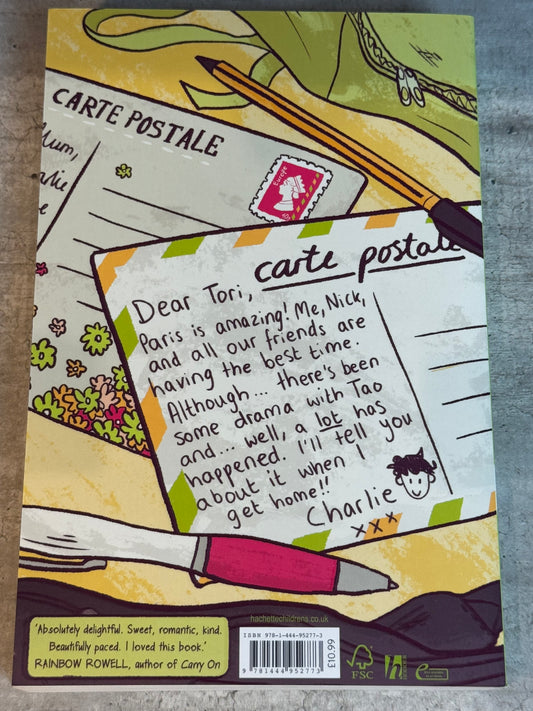 CARTE POSTALE
Mum,
Europe
carte postale
Dear Tori,
Paris is amazing! Me, Nick,
and all our friends are
having the best time.
Although... there's been
some drama with Tao
and... well, a lot has
happened. I'll tell you
about it when I
get home!!
Charlie
xxx
hachettechildrens.co.uk
'Absolutely delightful. Sweet, romantic, kind.
Beautifully paced. I loved this book.'
RAINBOW ROWELL, author of Carry On
ISBN 978-1-444-95277-3
9 781444 952773
£10.99
FSC
h
e